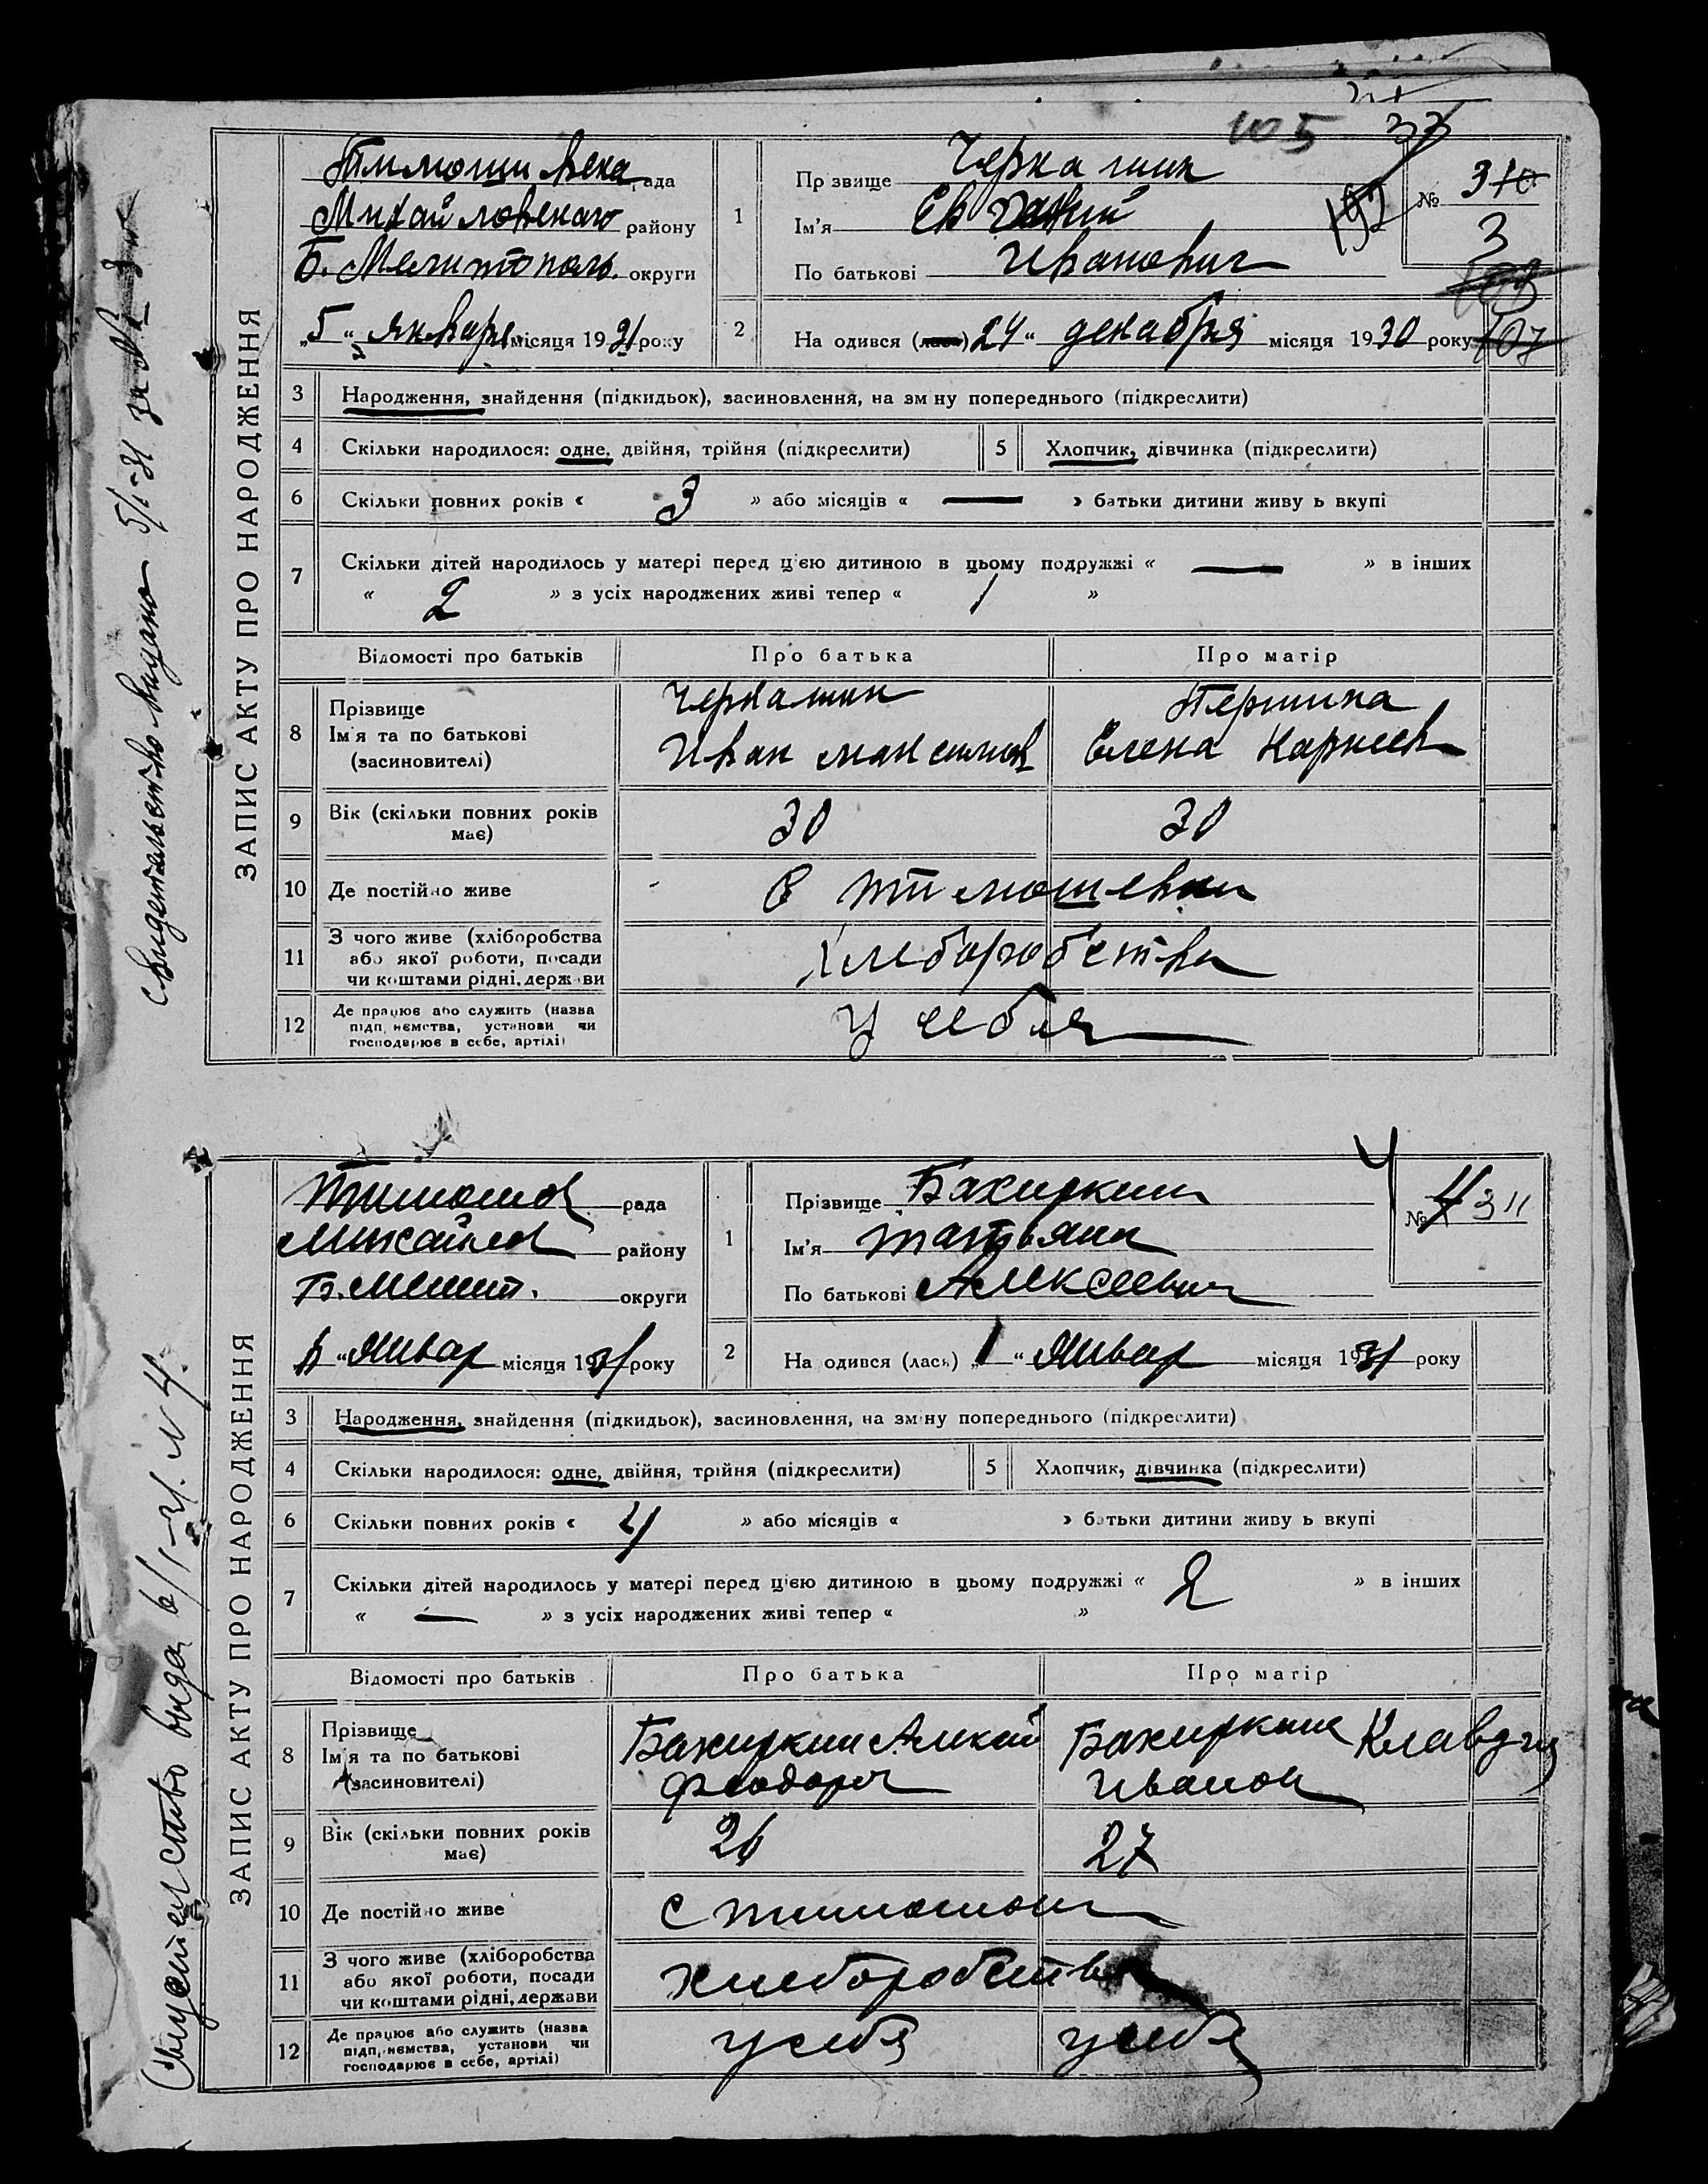 105 33
ЗАПИС АКТУ ПРО НАРОДЖЕННЯ
Свидетельство выдано 5/I-31 за № 3
Тимошивска рада
Михайловскаго району
Б. Мелитополь. округи
„5“ январь місяця 1931 року
1
Пр звище Черкашин
Ім'я Евгений
По батькові Иванович
192
№ 310
3
107
2
На одився (лась) 24 “ декабря місяця 1930 року
3 Народження, знайдення (підкидьок), засиновлення, на зм ну попереднього (підкреслити)
4 Скільки народилося: одне, двійня, трійня (підкреслити) 5 Хлопчик, дівчинка (підкреслити)
6 Скільки повних років « 3 » або місяців « — » батьки дитини живу ь вкупі
7 Скільки дітей народилось у матері перед ц'єю дитиною в цьому подружжі « — » в інших
« 2 » з усіх народжених живі тепер « 1 »
Відомості про батьків Про батька Про матір
8 Прізвище
Ім'я та по батькові
(засиновителі)
Черкашин
Иван Максимов
Першина
Елена Карнеев
9 Вік (скільки повних років
має)
30 30
10 Де постійно живе
с Тимошевки
11 З чого живе (хліборобства
або якої роботи, посади
чи коштами рідні, держ ви
хлеборобства
12 Де працює або служить (назва
підп, немства, установи чи
господарює в себе, артілі)
у себя
ЗАПИС АКТУ ПРО НАРОДЖЕННЯ
выда 6/I-31. № 4.
Тимошов рада
Михайлов району
Б. Мелит. округи
6 “ Январ місяця 1931 року
1
Прізвище Бахиркин
Ім'я Татьяна
По батькові Алексеевна
4
№ 4 311
2
На одився (лася) „1“ Январ місяця 1931 року
3 Народження, знайдення (підкидьок), засиновлення, на зм ну попереднього (підкреслити)
4 Скільки народилося: одне, двійня, трійня (підкреслити) 5 Хлопчик, дівчинка (підкреслити)
6 Скільки повних років « 4 » або місяців « » батьки дитини живу ь вкупі
7 Скільки дітей народилось у матері перед ц'єю дитиною в цьому подружжі « 2 » в інших
« — » з усіх народжених живі тепер « »
Відомості про батьків Про батька Про матір
8 Прізвище
Ім'я та по батькові
(засиновителі)
Бахиркин Алексей
Феодоров
Бахиркина Клавдия
Иванов
9 Вік (скільки повних років
має)
26 27
10 Де постійно живе
с Тимошов
11 З чого живе (хліборобства
або якої роботи, посади
чи коштами рідні, держави
хлеборобства
12 Де працює або служить (назва
підп, немства, установи чи
господарює в себе, артілі)
у себя у себя